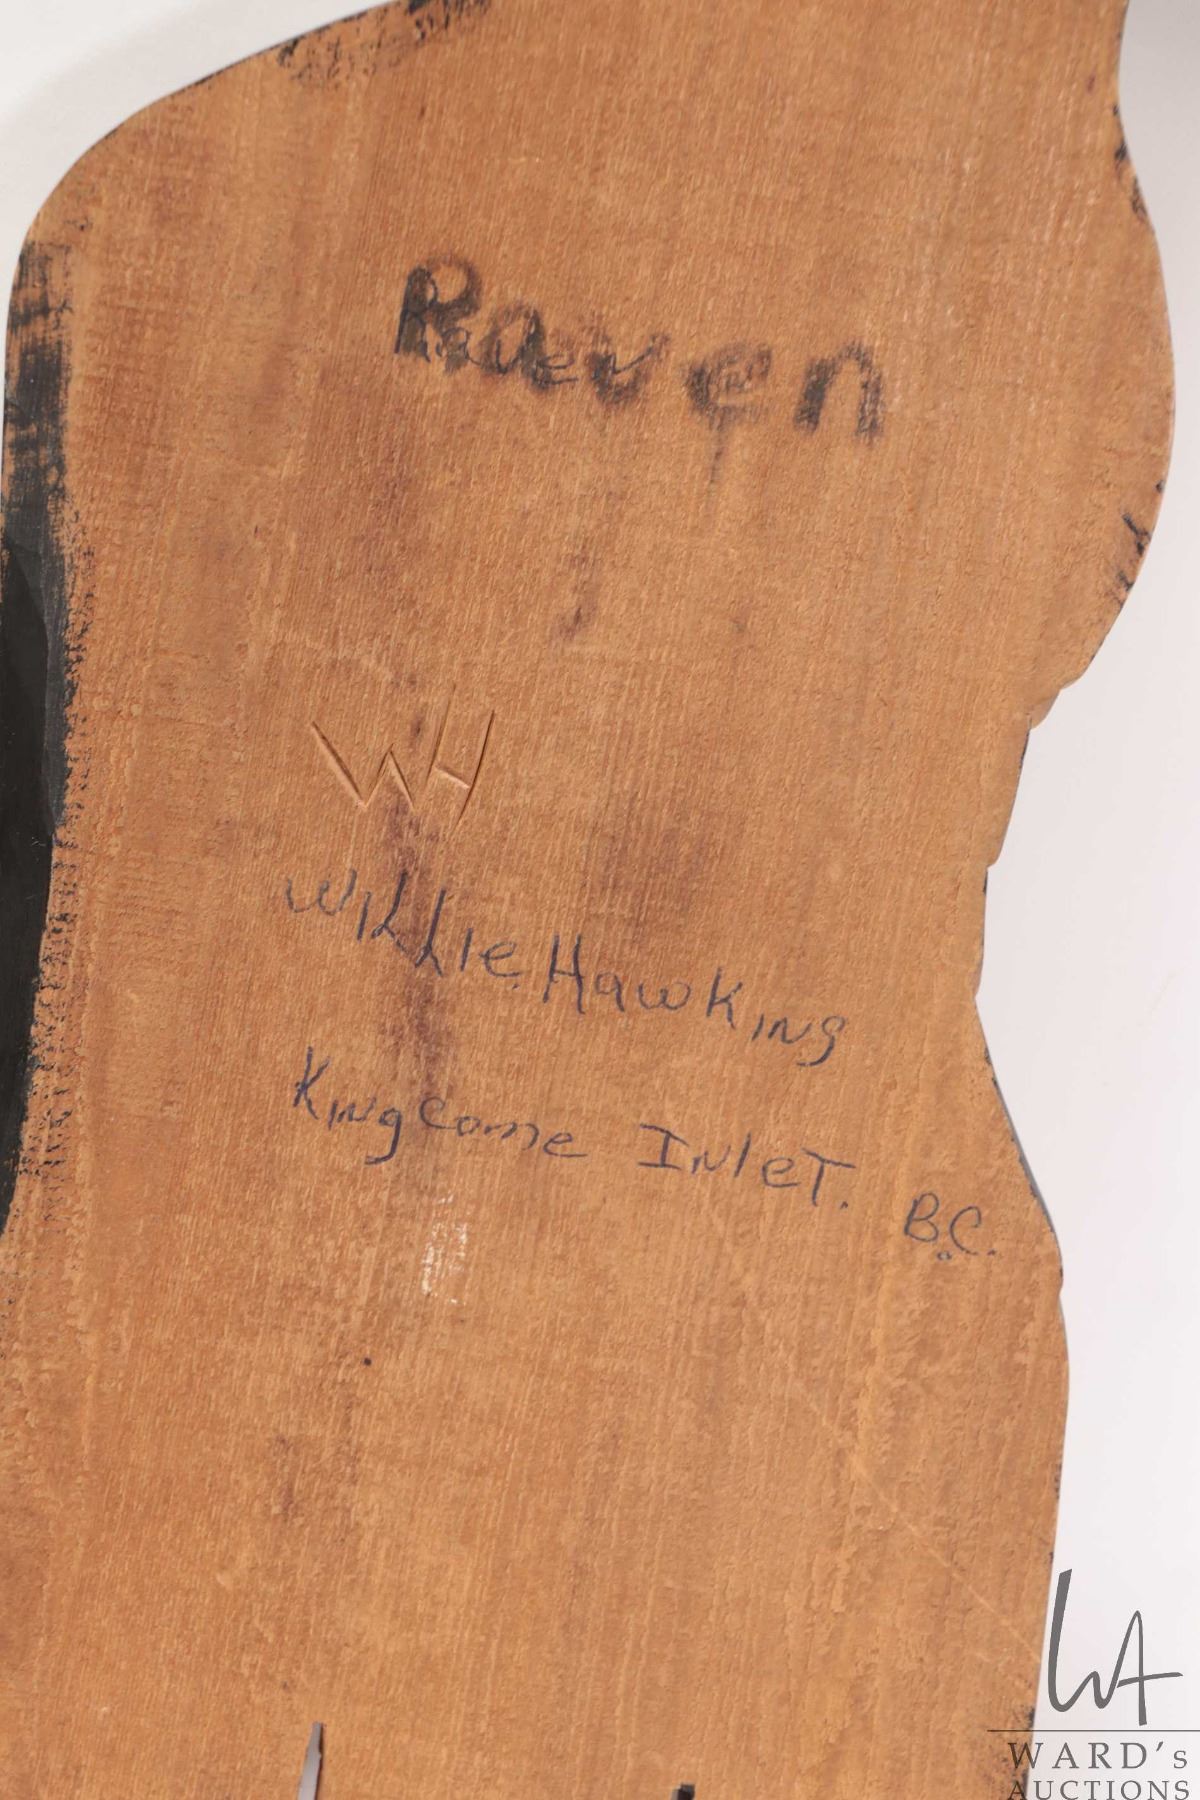 Raven
Raven
WH
WILLIE HawKINg
KINgCome INleT. B.C.
WA
WARD's
AUCTIONS